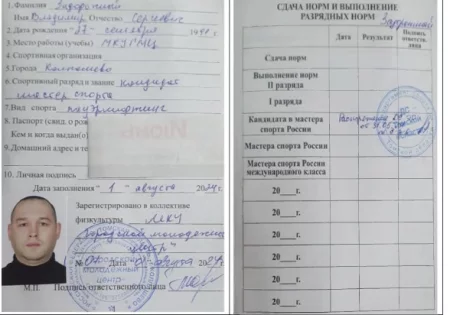 1.Фамилия Задорожный
Имя Владимир Отчество Сергеевич
2.Дата рождения "27" сентября г.
3.Место работы (учебы) МКУ ГМЦ
4.Спортивная организация
5.Города Колпашево
6.Спортивный разряд и звание Кандидат
мастер спорта
7.Вид спорта пауэрлифтинг
8.Паспорт (свид. о рож
Кем и когда выдан(о)
9.Домашний адрес и те
10. Личная подпись
Дата заполнения "1" августа г.
Зарегистрировано в коллективе
физкультуры МКУ
"Городской молодежный
центр"
№ Дата
М.П. Подпись ответственного лица
СДАЧА НОРМ И ВЫПОЛНЕНИЕ
РАЗРЯДНЫХ НОРМ Задорожный
Дата Результат Подпись ответств. лица
Сдача норм
Выполнение норм
II разряда
I разряда
Кандидата в мастера
спорта России
Мастера спорта России
Мастера спорта России
международного класса
20___г.
20___г.
20___г.
20___г.
20___г.
20___г.
20___г.